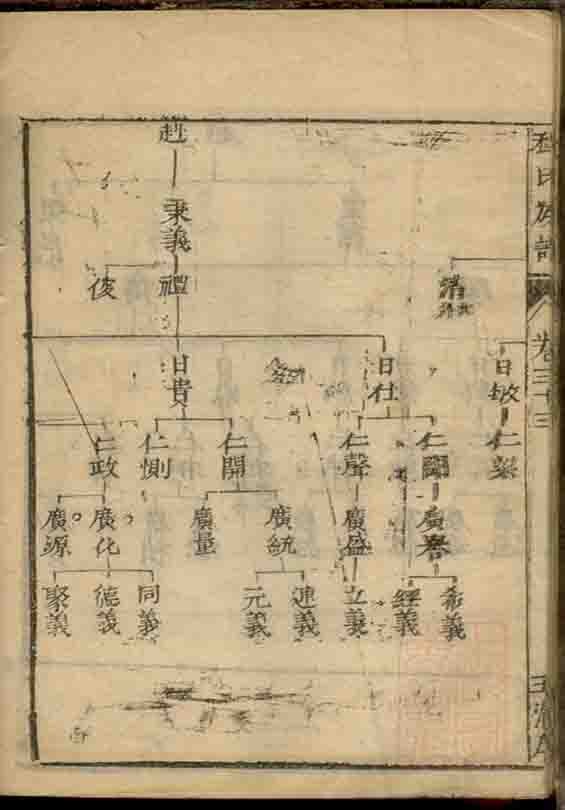 氏族譜
卷三十三
清
日仕
仁
仁聲
廣
廣盛
希義
經義
立義
趙
秉義
禮
俊
日貴
仁開
仁惻
仁政
廣統
廣量
廣化
廣源
連義
元義
同義
德義
聚義